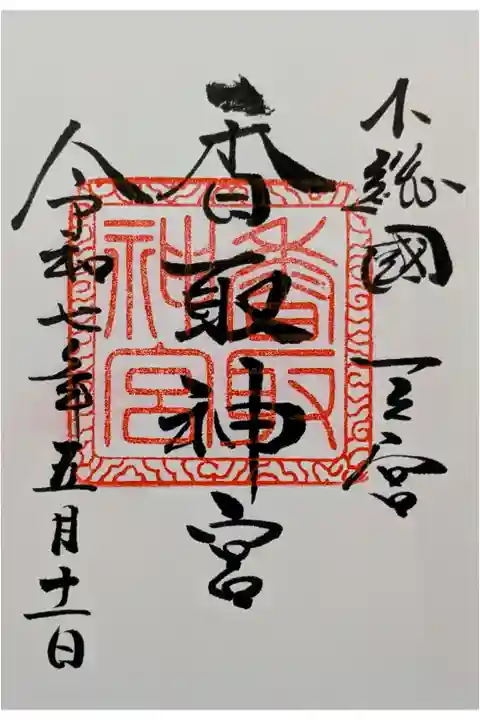 下総國 一之宮
香取神宮
香取神宮
令和七年五月十一日